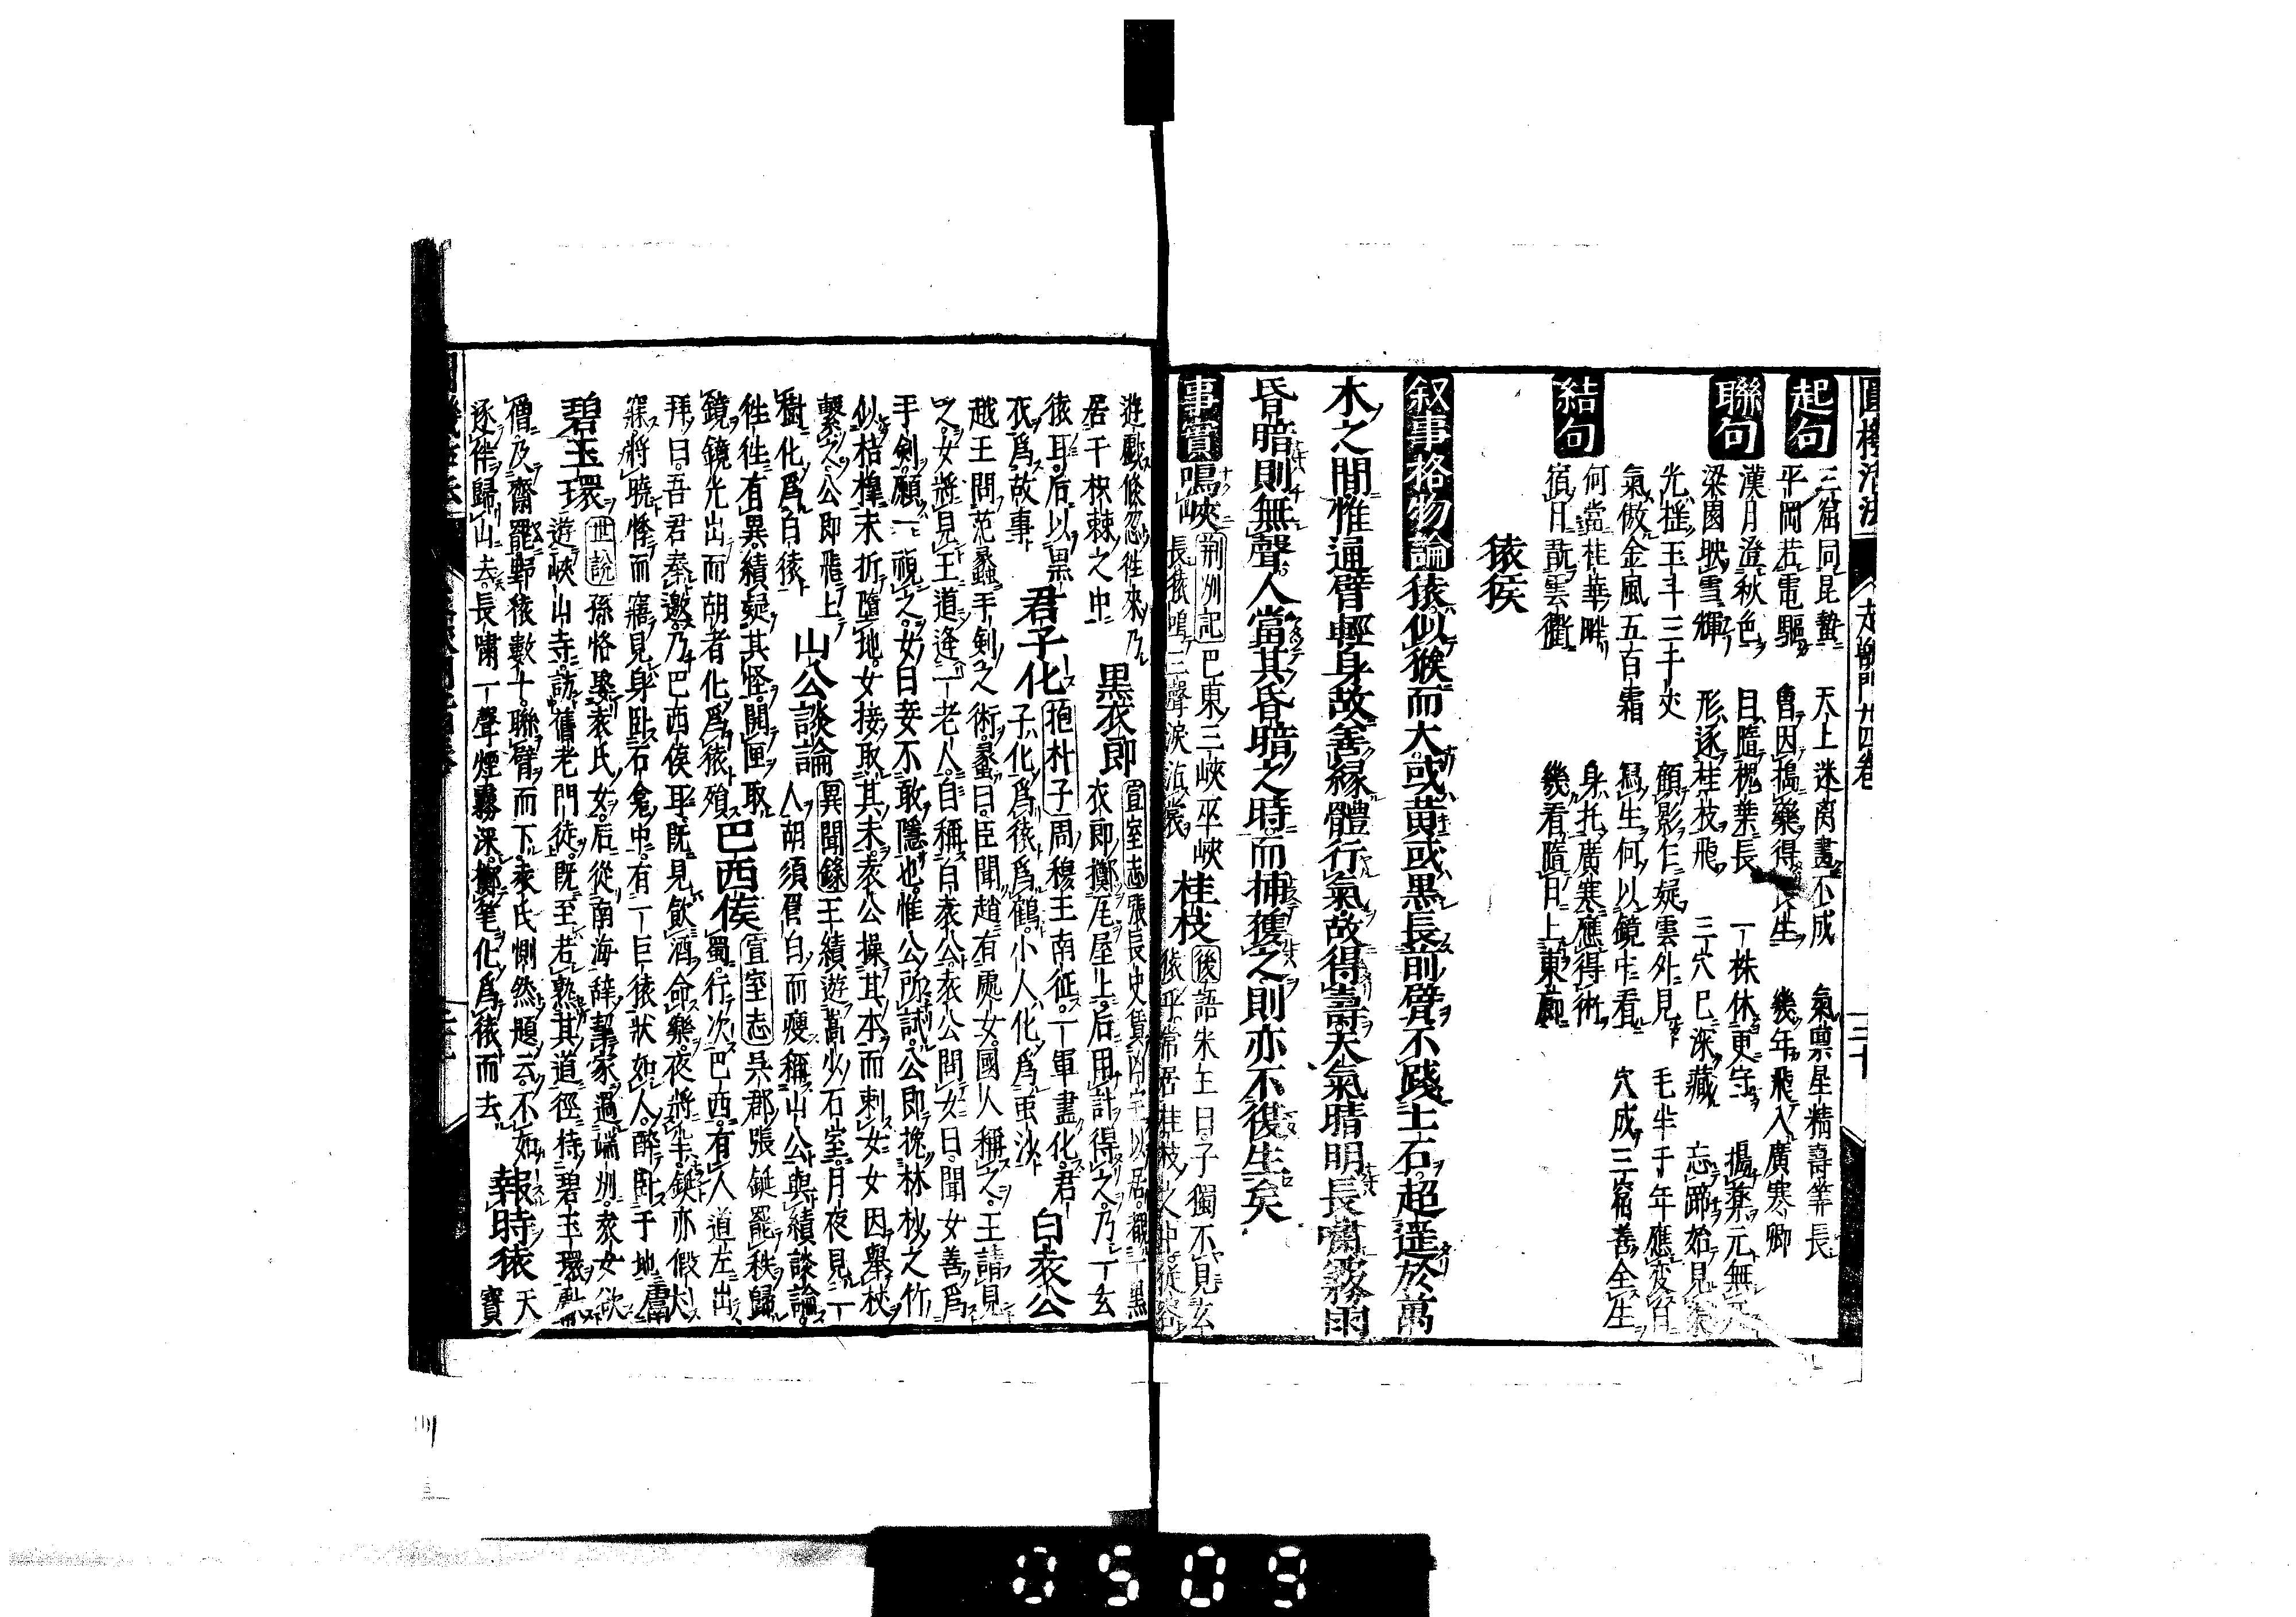 圓機活法 走獸門廿四卷 三十
起句 三窟同昆蟄 天上迷离畫不成 氣禀星精壽筭長
平岡若電驅 曾因搗藥得長生 幾年飛入廣寒卿
聯句 漢月澄秋色 目隨槐葉長 一株休更守
梁園映雪輝 形逐桂枝飛 三穴已深藏 忘蹄始見
光揺玉斗三千丈 顧影仁疑雲外見 毛半千年應変白
氣傲金風五百霜 爲生何以鏡中看 穴成三窟善全生
結句 何當桂華畔 身托廣寒應得術
宿日翫雲衢 幾看隨日上東廊
猿猴
叙事格物論 猿似猴而大或黄或黒長前臂不踐土石超遥於萬
木之間惟通臂輕身故善縁體行氣故得壽天氣晴明長嘯霧雨
昏暗則無聲人當其昏暗之時而捕獲之則亦不復生矣
事實 鳴峽 荆州記 巴東三峽巫峽
長猿鳴三聲涙沾裳 桂枝 後語宋玉曰子獨不見玄
猿乎常居桂枝之中從容
遊戲倐忽徃來乃
居千枳棘之中 黒衣郎 宣室志 張長史賃凶宅以居覩一黒
衣郎擲瓦屋上后用計得之乃一玄
猿耳后以黒
衣爲故事 君子化 抱朴子 周穆王南征一軍盡化君
子化爲猿爲鶴小人化爲虫沙 白袁公
越王問范蠡手剣之術蠡曰臣聞趙有處女國人稱之王請見
之女將見王道逢一老人自稱白袁公袁公問女曰聞女善爲
手剣願一視之女曰妾不敢隱也惟公所試公即挽林杪之竹
似桔槹末折墮地女接取其末袁公操其本而刺女女因舉杖
繫之公即飛上
樹化爲白猿 山公談論 異聞錄 王績遊嵩少石室月夜見二
人胡須眉白而痩稱山公與績談論
徃徃有異績疑其怪開匣取
鏡鏡光出而胡者化爲猿殞 巴西侯 宣室志 吳郡張鋋罷秩歸
蜀行次巴西有人道左出
拜曰吾君奉邀乃巴西侯耳既見飲酒命樂夜將半鋋亦假大
寐將曉悸而寤見身卧石龛中有一巨猿狀如人醉卧于地
碧玉環 世說 孫恪娶袁氏女后從南海辞挈家過端州袁女欲
遊峽山寺訪舊老門徒既至若熟其道徑持碧玉環
僧及齋罷野猿數十聯臂而下袁氏惻然題云不如
逐伴歸山去長嘯一聲煙霧深擲笔化爲猿而去 報時猿 天
寶